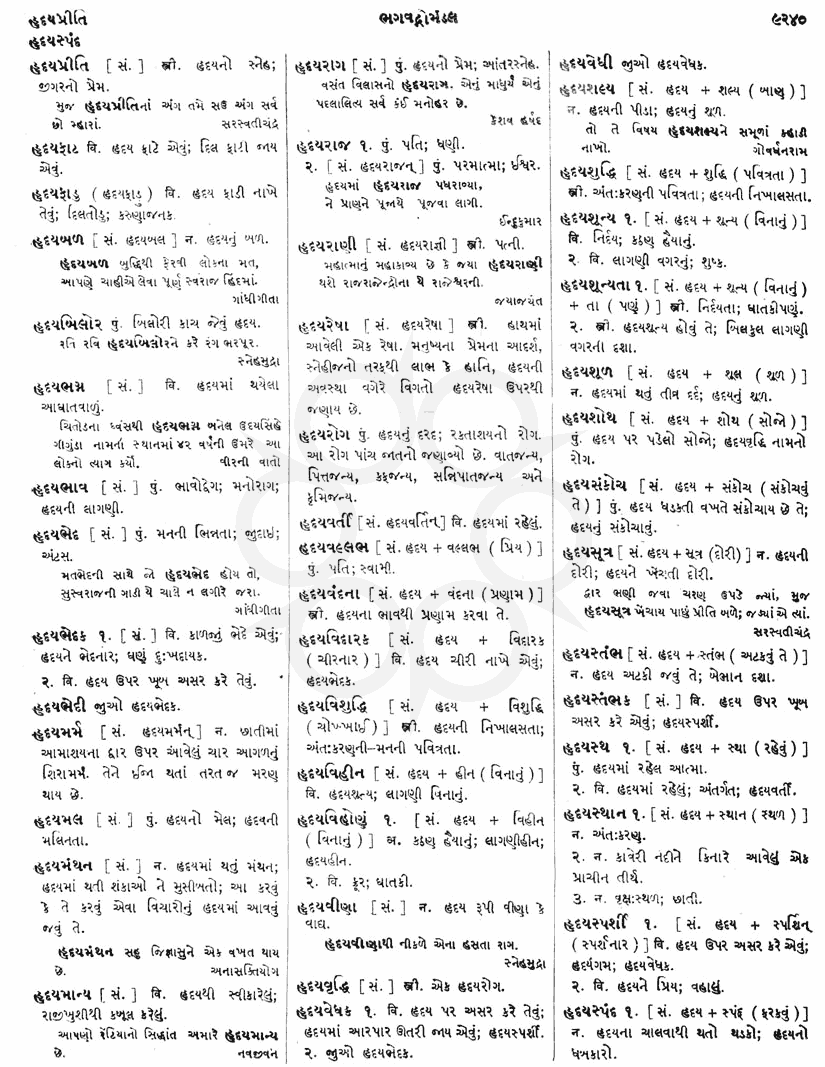 હૃદયપ્રીતિ
ભગવદ્ગોમંડલ
૯૨૪૦
હૃદયસ્પંદ
હૃદયપ્રીતિ [ સં. ] સ્ત્રી. હૃદયનો સ્નેહ;
જીગરનો પ્રેમ.
મુજ હૃદયપ્રીતિનાં અંગ તમે સઉ અંગ સર્વ
છો મ્હારાં. સરસ્વતીચંદ્ર
હૃદયફાટ વિ. હૃદય ફાટે એવું; દિલ ફાટી જાય
એવું.
હૃદયફાડુ ( હૃદયફાડુ ) વિ. હૃદય ફાડી નાખે
તેવું; દિલતોડુ; કરુણાજનક.
હૃદયબળ [ સં. હૃદયબલ ] ન. હૃદયનું બળ.
હૃદયબળ બુદ્ધિથી ફેરવી લોકના મત,
આપણે ચાહીએ લેવા પૂર્ણ સ્વરાજ હિંદમાં.
ગાંધીગીતા
હૃદયબિલોર પું. બિલોરી કાચ જેવું હૃદય.
રતિ રવિ હૃદયબિલોરને કરે રંગ ભરપૂર.
સ્નેહમુદ્રા
હૃદયભગ્ન [ સં. ] વિ. હૃદયમાં થયેલા
આઘાતવાળું.
ચિતોડના ધ્વંસથી હૃદયભગ્ન બનેલ ઉદયસિંહે
ગીગુંડા નામના સ્થાનમાં ૪૨ વર્ષની ઉમરે આ
લોકનો ત્યાગ કર્યો. વીરની વાતો
હૃદયભાવ [ સં. ] પું. ભાવોદ્વેગ; મનોરાગ;
હૃદયની લાગણી.
હૃદયભેદ [ સં. ] પું. મનની ભિન્નતા; જુદાઇ;
અંટસ.
મતભેદની સાથે જો હૃદયભેદ હોય તો,
સુસ્વરાજની ગાડી થૈ ચાલે ન લગીરે જરા.
ગાંધીગીતા
હૃદયભેદક ૧. [ સં. ] વિ. કાળજું ભેદે એવું;
હૃદયને ભેદનાર; ઘણું દુઃખદાયક.
૨. વિ. હૃદય ઉપર ખૂબ અસર કરે તેવું.
હૃદયભેદી જુઓ હૃદયભેદક.
હૃદયમર્મ [ સં. હૃદયમર્મન્ ] ન. છાતીમાં
આમાશયના દ્વાર ઉપર આવેલું ચાર આગળનું
શિરામર્મ. તેને ઈજા થતાં તરત જ મરણ
થાય છે.
હૃદયમલ [ સં. ] પું. હૃદયનો મેલ; હૃદયની
મલિનતા.
હૃદયમંથન [ સં. ] ન. હૃદયમાં થતું મંથન;
હૃદયમાં થતી શંકાઓ ને મુસીબતો; આ કરવું
કે તે કરવું એવા વિચારોનું હૃદયમાં આવવું
જવું તે.
હૃદયમંથન સહુ જિજ્ઞાસુને એક વખત થાય
છે. અનાસક્તિયોગ
હૃદયમાન્ય [ સં. ] વિ. હૃદયથી સ્વીકારેલું;
રાજીખુશીથી કબૂલ કરેલું.
આપણો રેંટિયાનો સિદ્ધાંત અમારે હૃદયમાન્ય
છે. નવજીવન
હૃદયરાગ [ સં. ] પું. હૃદયનો પ્રેમ; આંતરસ્નેહ.
વસંત વિલાસનો હૃદયરાગ. એનું માધુર્ય એનું
પદલાલિત્ય સર્વ કંઈ મનોહર છે.
કેશવ હર્ષદ
હૃદયરાજ ૧. પું. પતિ; ધણી.
૨. [ સં. હૃદયરાજન્ ] પું. પરમાત્મા; ઈશ્વર.
હૃદયમાં હૃદયરાજ પધરાવ્યા,
ને પ્રાણને પૂજાયે પૂજવા લાગી.
ઈન્દુકુમાર
હૃદયરાણી [ સં. હૃદયરાજ્ઞી ] સ્ત્રી. પત્ની.
મહાત્માનું મહાકાવ્ય છે કે જયા હૃદયરાણી
થશે રાજરાજેન્દ્રોના યે રાજેશ્વરની.
જયાજયંત
હૃદયરેષા [ સં. હૃદયરેષા ] સ્ત્રી. હાથમાં
આવેલી એક રેષા. મનુષ્યના પ્રેમના આદર્શ,
સ્નેહીજનો તરફથી લાભ કે હાનિ, હૃદયની
અવસ્થા વગેરે વિગતો હૃદયરેષા ઉપરથી
જણાય છે.
હૃદયરોગ પું. હૃદયનું દરદ; રક્તાશયનો રોગ.
આ રોગ પાંચ જાતનો જણાવ્યો છે. વાતજન્ય,
પિત્તજન્ય, કફજન્ય, સન્નિપાતજન્ય અને
કૃમિજન્ય.
હૃદયવર્તી [ સં. હૃદયવર્તિન્ ] વિ. હૃદયમાં રહેલું.
હૃદયવલ્લભ [ સં. હૃદય + વલ્લભ ( પ્રિય ) ]
પું. પતિ; સ્વામી.
હૃદયવંદના [ સં. હૃદય + વંદના ( પ્રણામ ) ]
સ્ત્રી. હૃદયના ભાવથી પ્રણામ કરવા તે.
હૃદયવિદારક [ સં. હૃદય + વિદારક
( ચીરનાર ) ] વિ. હૃદય ચીરી નાખે એવું;
હૃદયભેદક.
હૃદયવિશુદ્ધિ [ સં. હૃદય + વિશુદ્ધિ
( ચોખ્ખાઈ ) ] સ્ત્રી. હૃદયની નિખાલસતા;
અંતઃકરણની–મનની પવિત્રતા.
હૃદયવિહીન [ સં. હૃદય + હીન ( વિનાનું ) ]
વિ. હૃદયશૂન્ય; લાગણી વિનાનું.
હૃદયવિહોણું ૧. [ સં. હૃદય + વિહીન
( વિનાનું ) ] વિ. કઠણ હૈયાનું; લાગણીહીન;
હૃદયહીન.
૨. વિ. ક્રૂર; ઘાતકી.
હૃદયવીણા [ સં. ] ન. હૃદય રૂપી વીણા કે
વાદ્ય.
હૃદયવીણાથી નીકળે એના હસતા રાગ.
સ્નેહમુદ્રા
હૃદયવૃદ્ધિ [ સં. ] સ્ત્રી. એક હૃદયરોગ.
હૃદયવેધક ૧. વિ. હૃદય પર અસર કરે તેવું;
હૃદયમાં આરપાર ઊતરી જાય એવું; હૃદયસ્પર્શી.
૨. જુઓ હૃદયભેદક.
હૃદયવેધી જુઓ હૃદયવેધક.
હૃદયશલ્ય [ સં. હૃદય + શલ્ય ( બાણ ) ]
ન. હૃદયની પીડા; હૃદયનું શૂળ.
તો તે વિષય હૃદયશલ્યને સમૂળાં ક્હાડી
નાખો. ગોવર્ધનરામ
હૃદયશુદ્ધિ [ સં. હૃદય + શુદ્ધિ ( પવિત્રતા ) ]
સ્ત્રી. અંતઃકરણની પવિત્રતા; હૃદયની નિખાલસતા.
હૃદયશૂન્ય ૧. [ સં. હૃદય + શૂન્ય ( વિનાનું ) ]
વિ. નિર્દય; કઠણ હૈયાનું.
૨. વિ. લાગણી વગરનું; શુષ્ક.
હૃદયશૂન્યતા ૧. [ સં. હૃદય + શૂન્ય ( વિનાનું )
+ તા ( પણું ) ] સ્ત્રી. નિર્દયતા; ઘાતકીપણું.
૨. સ્ત્રી. હૃદયશૂન્ય હોવું તે; બિલકુલ લાગણી
વગરની દશા.
હૃદયશૂળ [ સં. હૃદય + શૂલ ( શૂળ ) ]
ન. હૃદયમાં થતું તીવ્ર દર્દ; હૃદયનું શૂળ.
હૃદયશોથ [ સં. હૃદય + શોથ ( સોજો ) ]
પું. હૃદય પર પડેલો સોજો; હૃદયવૃદ્ધિ નામનો
રોગ.
હૃદયસંકોચ [ સં. હૃદય + સંકોચ ( સંકોચવું
તે ) ] પું. હૃદય ધડકતી વખતે સંકોચાય છે તે;
હૃદયનું સંકોચાવું.
હૃદયસૂત્ર [ સં. હૃદય + સૂત્ર (દોરી) ] ન. હૃદયની
દોરી; હૃદયને ખેંચતી દોરી.
દ્વાર ભણી જવા ચરણ ઉપડે ત્યાં, મુજ
હૃદયસૂત્ર ખેંચાય પાછું પ્રીતિ બળે; જડ્યાં એ ત્યાં.
સરસ્વતીચંદ્ર
હૃદયસ્તંભ [ સં. હૃદય + સ્તંભ ( અટકવું તે ) ]
ન. હૃદય અટકી જવું તે; બેભાન દશા.
હૃદયસ્તંભક [ સં. ] વિ. હૃદય ઉપર ખૂબ
અસર કરે એવું; હૃદયસ્પર્શી.
હૃદયસ્થ ૧. [ સં. હૃદય + સ્થા ( રહેવું ) ]
પું. હૃદયમાં રહેલ આત્મા.
૨. વિ. હૃદયમાં રહેલું; અંતર્ગત; હૃદયવર્તી.
હૃદયસ્થાન ૧. [ સં. હૃદય + સ્થાન ( સ્થળ ) ]
ન. અંતઃકરણ.
૨. ન. કાવેરી નદીને કિનારે આવેલું એક
પ્રાચીન તીર્થ.
૩. ન. વક્ષઃસ્થળ; છાતી.
હૃદયસ્પર્શી ૧. [ સં. હૃદય + સ્પર્શિન્
( સ્પર્શનાર ) ] વિ. હૃદય ઉપર અસર કરે એવું;
હૃદયંગમ; હૃદયવેધક.
૨. વિ. હૃદયને પ્રિય; વહાલું.
હૃદયસ્પંદ ૧. [ સં. હૃદય + સ્પંદ ( ફરકવું ) ]
ન. હૃદયના ચાલવાથી થતો થડકો; હૃદયનો
ધબકારો.